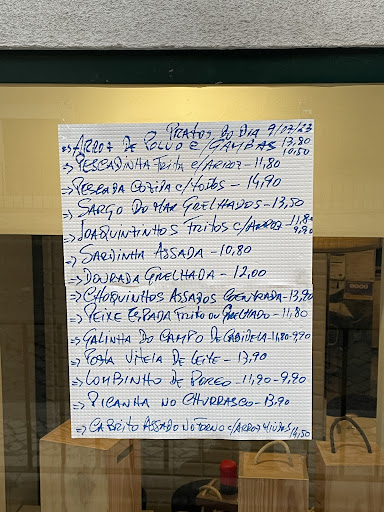 PRATOS DO DIA 9/07/23
⇒ ARROZ DE POLVO C/GAMBAS 13,80 10,50
⇒ PESCADINHA FRITA C/ARROZ - 11,80
⇒ PESCADA COZIDA C/TODOS - 14,90
⇒ SARGO DO MAR GRELHADOS - 13,50
⇒ JOAQUINTINHOS FRITOS C/ARROZ - 11,80 9,90
⇒ SARDINHA ASSADA - 10,80
⇒ DOURADA GRELHADA - 12,00
⇒ CHOQUINHOS ASSADOS COENTRADA - 13,90
⇒ PEIXE ESPADA FRITO OU GRELHADO - 11,80
⇒ GALINHA DO CAMPO DE CABIDELA - 11,80 - 9,90
⇒ POSTA VITELA DE LEITE - 13,90
⇒ LOMBINHO DE PORCO - 11,90 - 9,90
⇒ PICANHA NO CHURRASCO - 13,90
⇒ CABRITO ASSADO NO FORNO C/ARROZ MIÚDOS 14,50